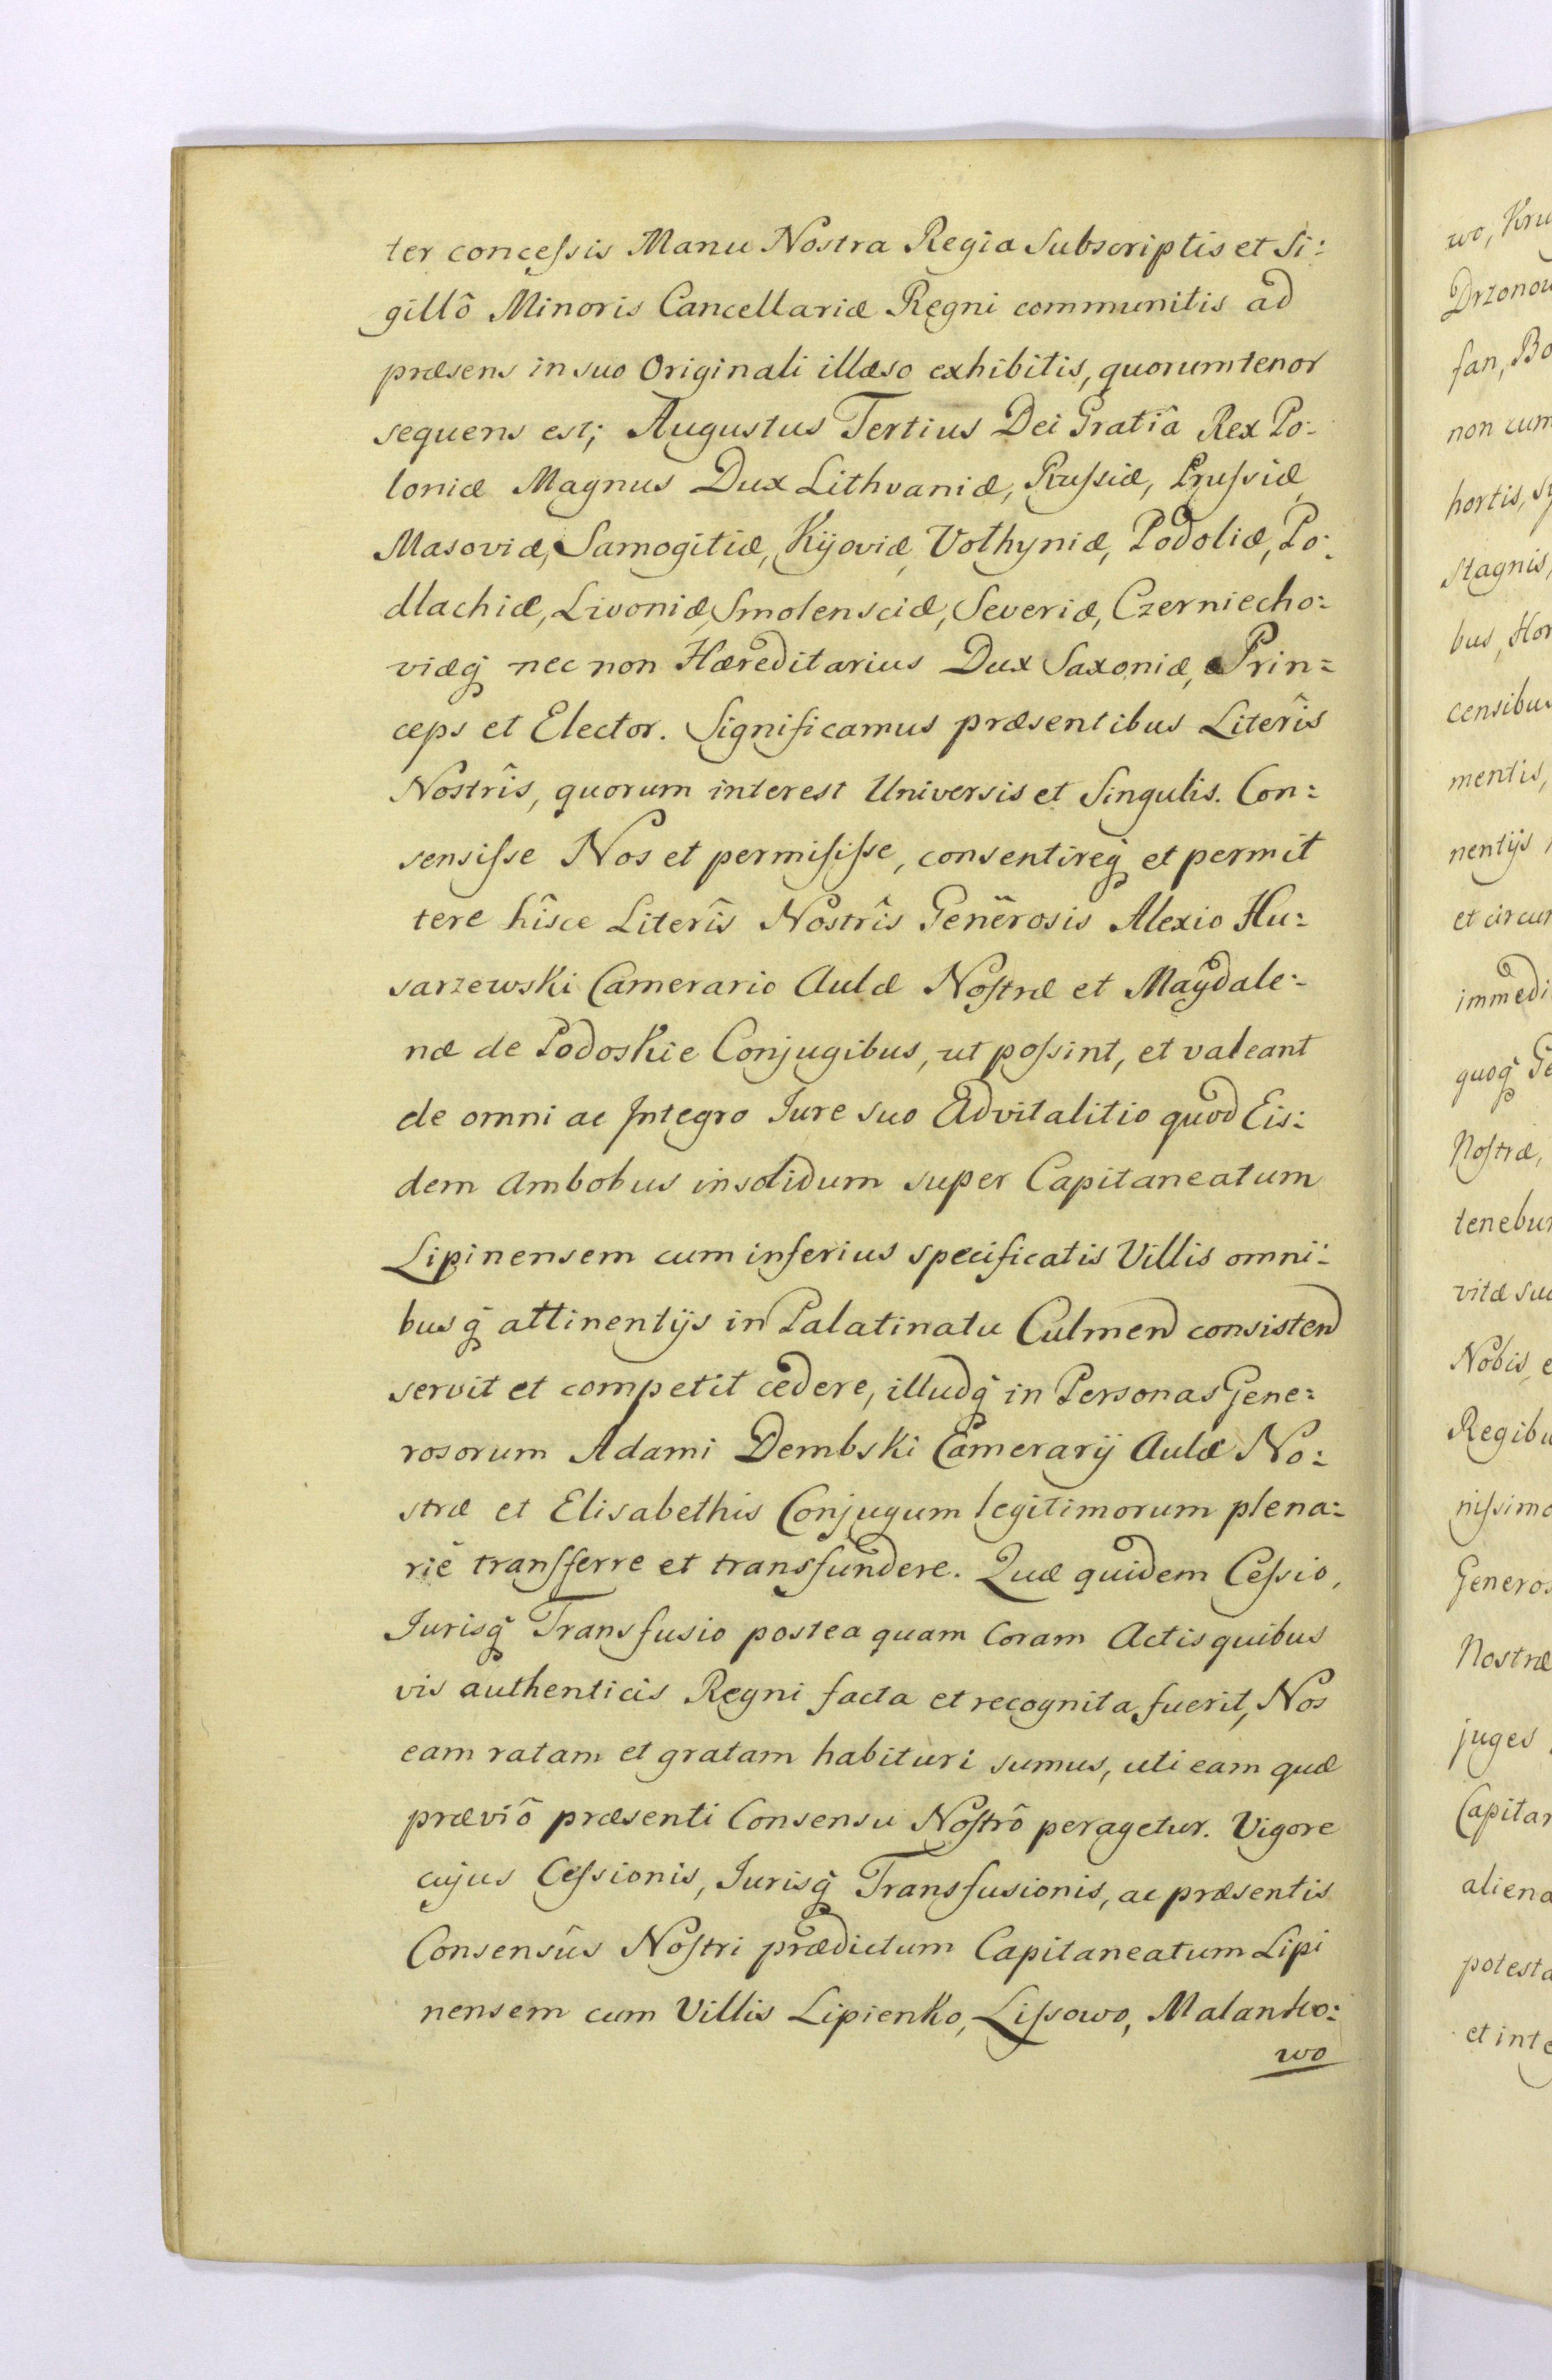 ter concessis Manu Nostra Regia Subscriptis et Si:
gillô Minoris Cancellariæ Regni communitis ad
præsens in suo Originali illæso exhibitis, quorum tenor
sequens est; Augustus Tertius Dei Gratiâ Rex Po:
loniæ Magnus Dux Lithvaniæ, Russiæ, Prussiæ,
Masoviæ, Samogitiæ, Kijoviæ, Volhyniæ, Podoliæ, Po:
dlachiæ, Livoniæ, Smolensciæ, Severiæ, Czerniecho:
viæq́ nec non Hæreditarius Dux Saxoniæ, Prin:
ceps et Elector. Significamus præsentibus Literîs
Nostrîs, quorum interest Universis et Singulis. Con:
sensisse Nos et permisisse, consentireq́ et permit
tere hîsce Literîs Nostrîs Generosis Alexio Hu:
sarzewski Camerario Aulæ Nostræ et Magdale:
næ de Podoskie Conjugibus, ut possint, et valeant
de omni ac Integro Jure suo Advitalitio quod Eis:
dem Ambobus insolidum super Capitaneatum
Lipinensem cum inferius specificatis Villis omni:
busq́ attinentijs in Palatinatu Culmen consisten
servit et competit cedere, illudq́ in Personas Gene:
rosorum Adami Dembski Camerarij Aulæ No:
stræ et Elisabethis Conjugum legitimorum plena:
riè transferre et transfundere. Quæ quidem Cessio,
Jurisq́ Transfusio postea quam Coram Actis quibus
vis authenticis Regni facta et recognita fuerit, Nos
eam ratam et gratam habituri sumus, uti eam quæ
præviô præsenti Consensu Nostrô peragetur. Vigore
cujus Cessionis, Jurisq́ Transfusionis, ac præsentis
Consensûs Nostri prædictum Capitaneatum Lipi
nensem cum Villis Lipienko, Lissowo, Malanko:
wo
wo, Kru
Drzonow
san, Bo
non cum
hortis, sy
stagnis,
bus, Hor
censibus
mentis,
nentijs
et circum
immedi
quoq́ Ge
Nostræ,
tenebun
vitæ suæ
Nobis, e
Regibu
nissimo
Generos
Nostræ
juges
Capitan
aliena
potesta
et inte